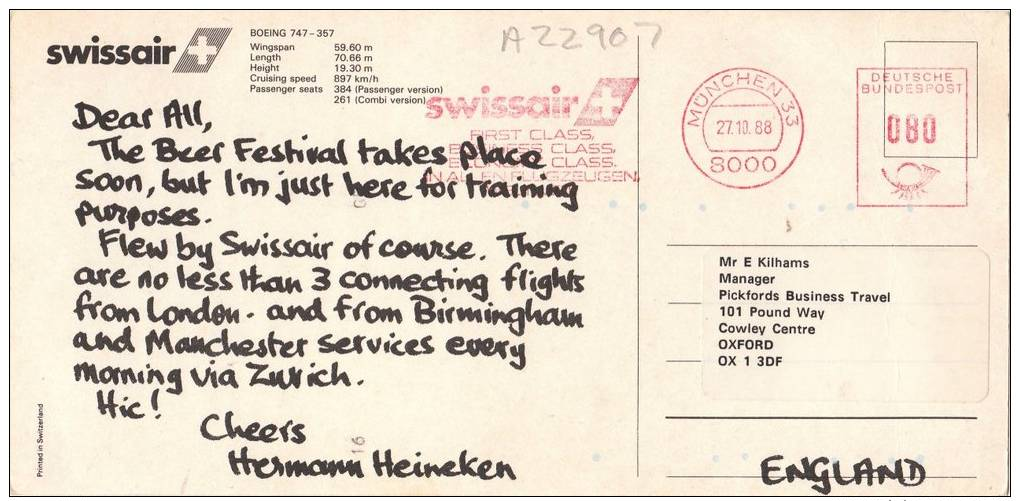 swissair
BOEING 747-357
Wingspan 59.60 m
Length 70.66 m
Height 19.30 m
Cruising speed 897 km/h
Passenger seats 384 (Passenger version)
261 (Combi version)
A22907
swissair
FIRST CLASS,
BUSINESS CLASS,
CLASS.
IN ALLEN FLUGZEUGEN.
MÜNCHEN 33
27.10.88
8000
DEUTSCHE
BUNDESPOST
080
Dear All,
The Beer Festival takes place
soon, but I'm just here for training
purposes.
Flew by Swissair of course. There
are no less than 3 connecting flights
from London - and from Birmingham
and Manchester services every
morning via Zurich.
Hic!
Cheers
Hermann Heineken
Mr E Kilhams
Manager
Pickfords Business Travel
101 Pound Way
Cowley Centre
OXFORD
OX 1 3DF
ENGLAND
Printed in Switzerland
16